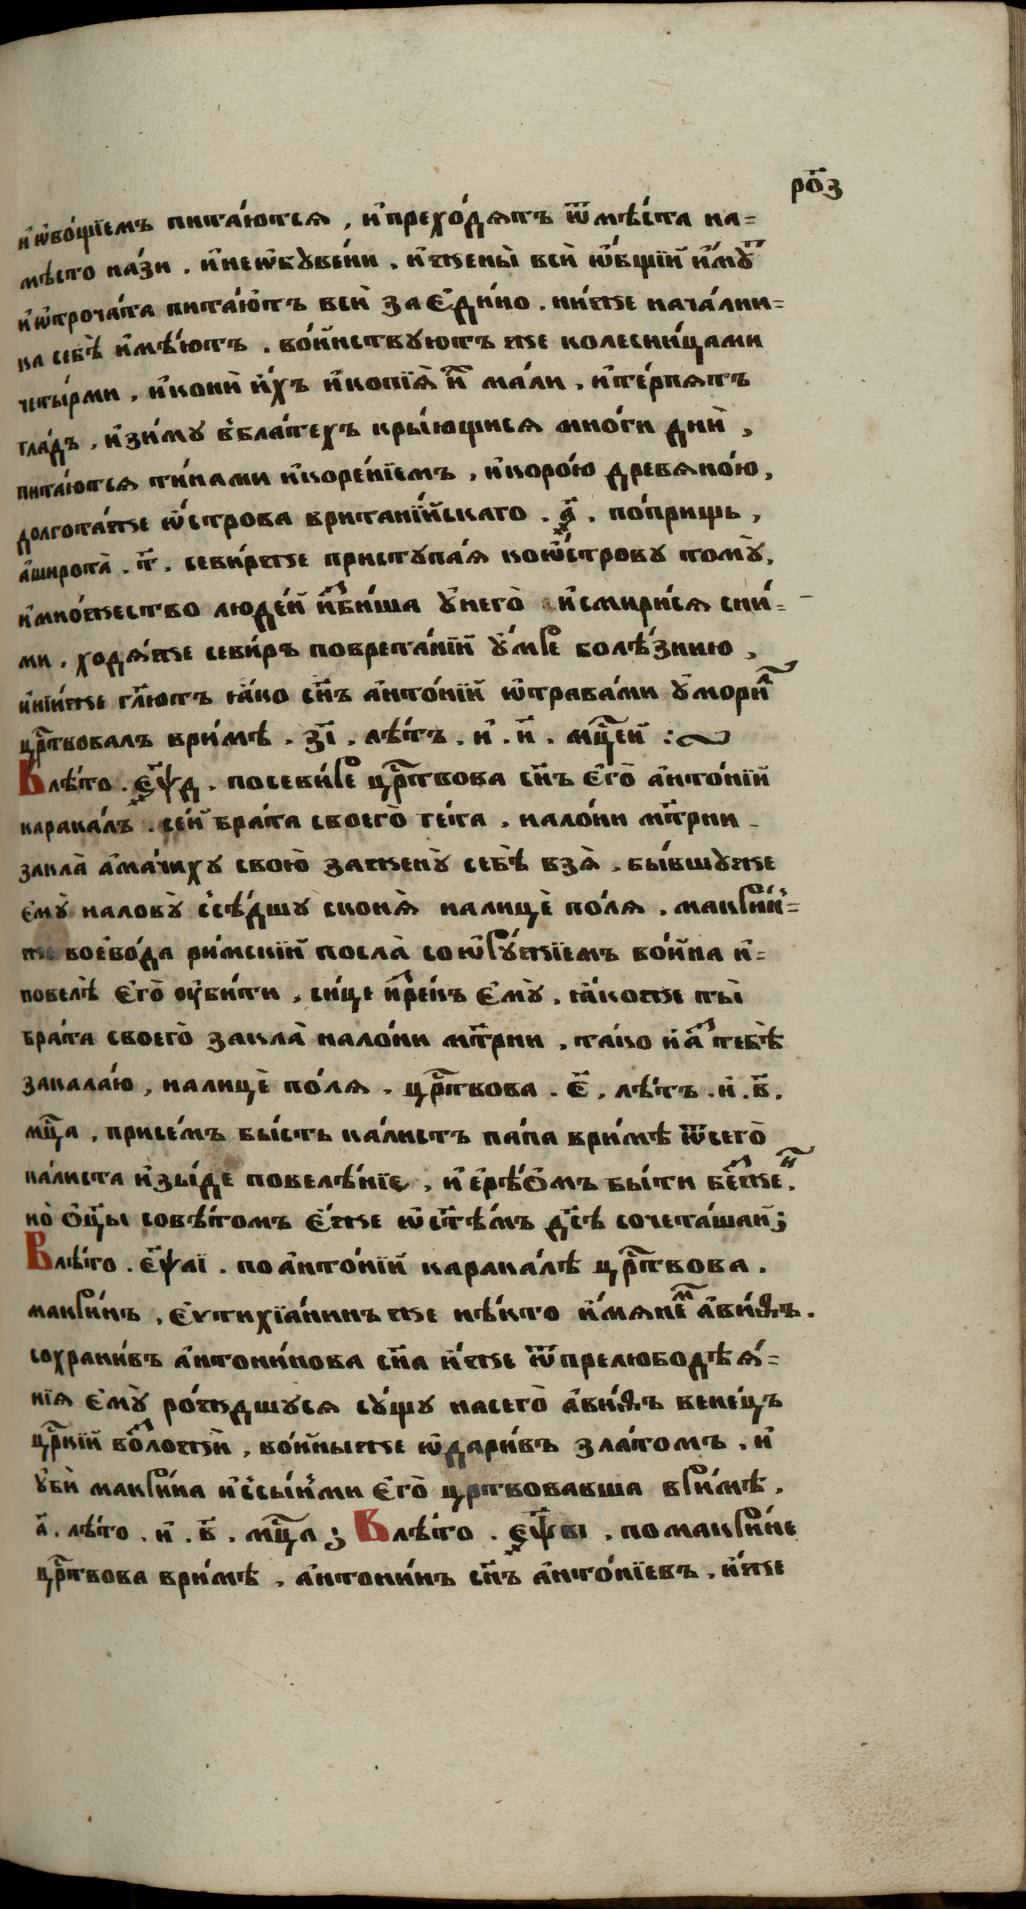 ро҃з
и҆ѡ҆во́щїемъ пита́ютсѧ , и҆прехо́дѧтъ ѿмѣ́ста на=
мѣ́сто на́зи . и҆неѡ҆бꙋве́ни . и҆жены̀ всѝ ѡ҆́бщїй и҆́мꙋт
и҆ѡ҆троча́та пита́ю҆тъ всѝ зає҆ди́но . ни́же нача́лни=
ка себѣ̀ и҆мѣ́ютъ . во́инствꙋютъ же колесни́цами
четы́рми , и҆конѝ и҆́хъ и҆копїѧ̀ и҆ ма́ли , и҆те́рпѧтъ
гла́дъ , и҆зи́мꙋ в҆бла́техъ кры́ющисѧ мно́ги днѝ ,
пита́ютсѧ ти́нами и҆коре́нїемъ , и҆коро́ю древѧно́ю ,
долгота́же ѡ҆́строва британїйскаго . ҂а҃ . по́прищь ,
а҆широта̀ . т҃ . севи́рже пристꙋпа́ѧ коѡ҆́стровꙋ томꙋ̀ ,
и҆мно́жество люде́й и҆зби́ша ꙋ҆него̀ и҆смири́сѧ сни́=
ми , ходѧ́же севи́ръ побрета́нїй ꙋ҆́мре болѣ́знию ,
и҆нїи́же гл҃ютъ ꙗ҆́ко сн҃ъ а҆нто́нїй ѡ҆трава́ми ꙋ҆мори̂
црⷭ҇твовалъври́мѣ . з҃і . лѣ́тъ . и҆ . и҃ . мцⷭ҇ей :~
Влѣ́то . ҂є҃ѱд . посеви́ре црⷭ҇твова сн҃ъ є҆го̀ а҆нто́нїй
карака́лъ . се́й бра́та своего̀ ге́та . нало́ни мт҃рни
закла̀ а҆ма́чихꙋ свою̀ заженꙋ̀ себѣ̀ взѧ̀ . бы́вшꙋже
є҆мꙋ̀ наловꙋ̀ с҆сѣ́дшꙋ сконѧ̀ налицѐ по́лѧ . макри́н=
же воево́да ри́мскїй посла̀ соѡ҆рꙋ́жїемъ во́ина и҆=
повелѣ̀ є҆го̀ ᲂу҆би́ти , си́це и҆зре́къ є҆мꙋ̀ , ꙗ҆́коже ты̀
бра́та своего̀ закла̀ нало́ни мт҃рни , та́ко и҆а҆́з тебѣ̀
закала́ю , налицѐ по́лѧ . црⷭ҇твова . є҃ . лѣ́тъ . и҆ . в҃ .
мцⷭ҇а , присе́мъ бы́сть ка́листъ па́паври́мѣ ѿсего̀
ка́листа и҆зы́де повелѣ́нїе , и҆ є҆рѣ́ѡмъ бы́ти беꙁже́н .
но̀ ѻ҆ц҃ы совѣ́томъ є҆́же ѡ҆ст҃ѣ́мъ дс҃ѣ сочета́шаи ;
Влѣ́то . ҂є҃ѱаі . поа҆нто́нїй карака́лѣ црⷭ҇твова .
макри́нъ , є҆ѵтихїа́нинъ же нѣ́кто и҆́мѧнемъ а҆ви́ѳъ .
сохрани́въ а҆нтони́нова сн҃а и҆́же ѿпрелюбодѣѧ́=
нїѧ є҆мꙋ̀ ро́ждшꙋсѧ сꙋ́щꙋ насего̀ а҆ви́ѳъ вене́цъ
црⷭ҇кїй возложѝ , во́иныже ѡ҆дари́въ зла́томъ . и҆
ꙋ҆бѝ макри́на и҆с҆сы́нми є҆го̀ црⷭ҇твовавша врі́мѣ ,
а҃ . лѣ́то . и҆ . в҃ . мцⷭ҇а ; Влѣ́то . ҂є҃ѱві . помакри́не
црⷭ҇твоваври́мѣ . а҆нтони́нъ сн҃ъ а҆нто́нїевъ , и҆́же